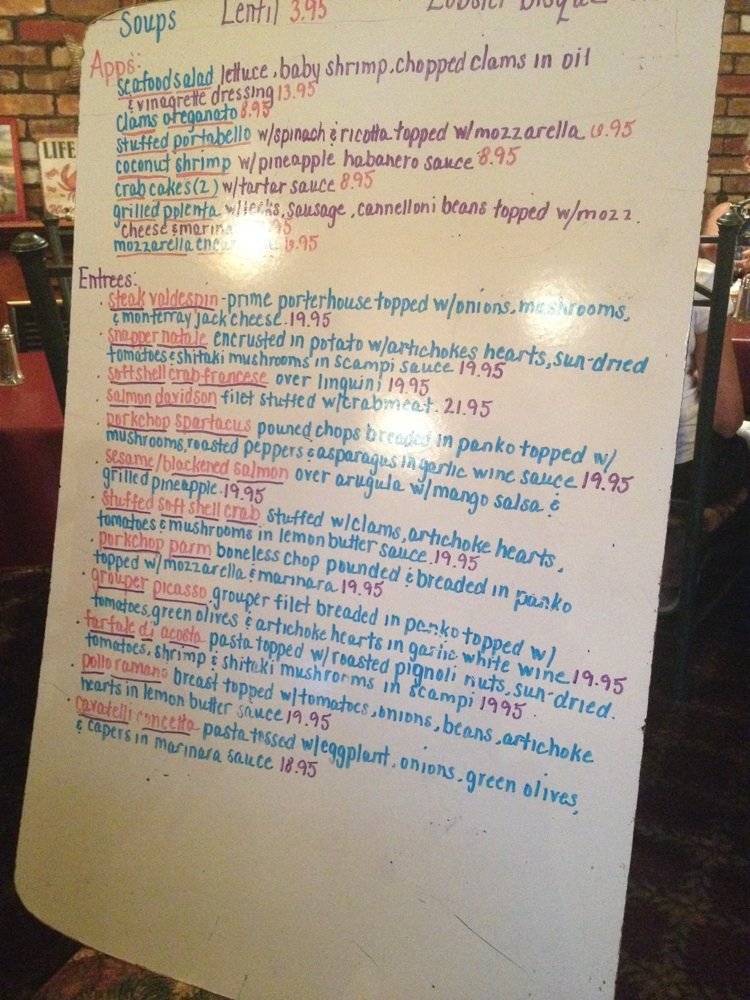 Soups Lentil 3.95 Lobster Bisque
LIFE
Apps:
seafood salad lettuce, baby shrimp, chopped clams in oil
& vinagrette dressing 13.95
clams oreganato 8.95
stuffed portabello w/spinach & ricotta topped w/mozzarella 6.95
coconut shrimp w/pineapple habanero sauce 8.95
crab cakes (2) w/tartar sauce 8.95
grilled polenta w/leeks, sausage, cannelloni beans topped w/mozz.
cheese & marina
mozzarella 6.95
Entrees:
. steak valdespin - prime porterhouse topped w/onions, mushrooms,
& monterray jack cheese. 19.95
. snapper natale encrusted in potato w/artichokes hearts, sun-dried
tomatoes & shitaki mushrooms in scampi sauce 19.95
. softshell crab francese over linguini 19.95
. salmon davidson filet stuffed w/crabmeat. 21.95
. porkchop spartacus pouned chops breaded in panko topped w/
mushrooms, roasted peppers & asparagus in garlic wine sauce 19.95
. sesame/blackened salmon over arugula w/mango salsa &
grilled pineapple. 19.95
. stuffed soft shell crab stuffed w/clams, artichoke hearts,
tomatoes & mushrooms in lemon butter sauce. 19.95
. porkchop parm boneless chop pounded & breaded in panko
topped w/mozzarella & marinara 19.95
. grouper picasso. grouper filet breaded in panko topped w/
tomatoes, green olives & artichoke hearts in garlic white wine 19.95
. farfale di acosta pasta topped w/roasted pignoli nuts, sun-dried.
tomatoes, shrimp & shitaki mushrorms in scampi 1995
. pollo ramano breast topped w/tomatoes, onions, beans, artichoke
hearts in lemon butter sauce 19.95
. cavatelli concetta pasta tossed w/eggplant, onions, green olives,
& capers in marinara sauce 18.95